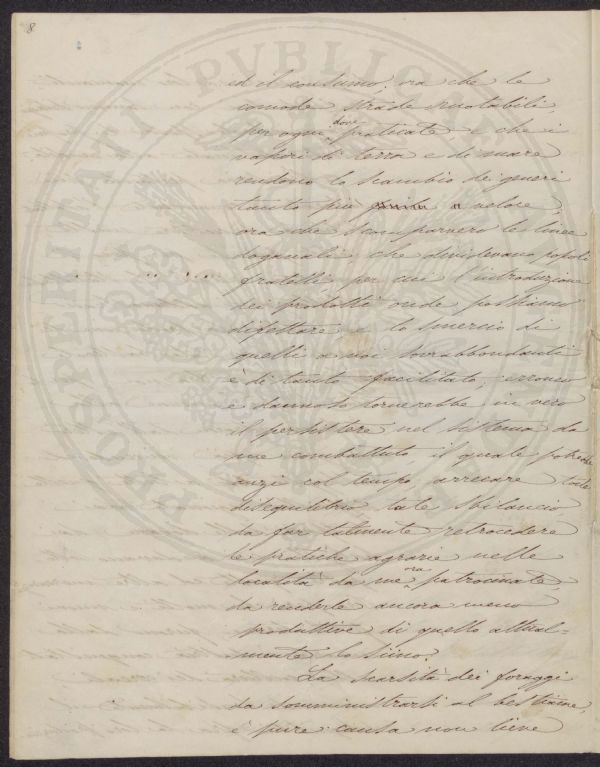 8
ed il consumo, ora che le
comode strade ruotabili,
per ogni dove praticate, e che i
vapori di terra e di mare
rendono lo scambio dei generi
tanto più veloce,
ora che scomparvero le linee
doganali che dividevano popoli
fratelli, per cui l'introduzione
dei prodotti onde possiamo
difettare e lo smercio di
quelli a noi sovrabbondanti
è di tanto facilitato, erroneo
e dannoso tornerebbe in vero
il persistere nel sistema da
me combattuto, il quale potrebbe
anzi col tempo arrecare tale
disequilibrio tale sbilancio
da far talmente retrocedere
le pratiche agrarie nelle
località da me ora patrocinate,
da renderle ancora meno
produttive di quello attual-
mente lo siino.
La scarsità dei foraggi
da somministrarsi al bestiame,
è pure causa non lieve
PROSPERITATI PVBLICAE